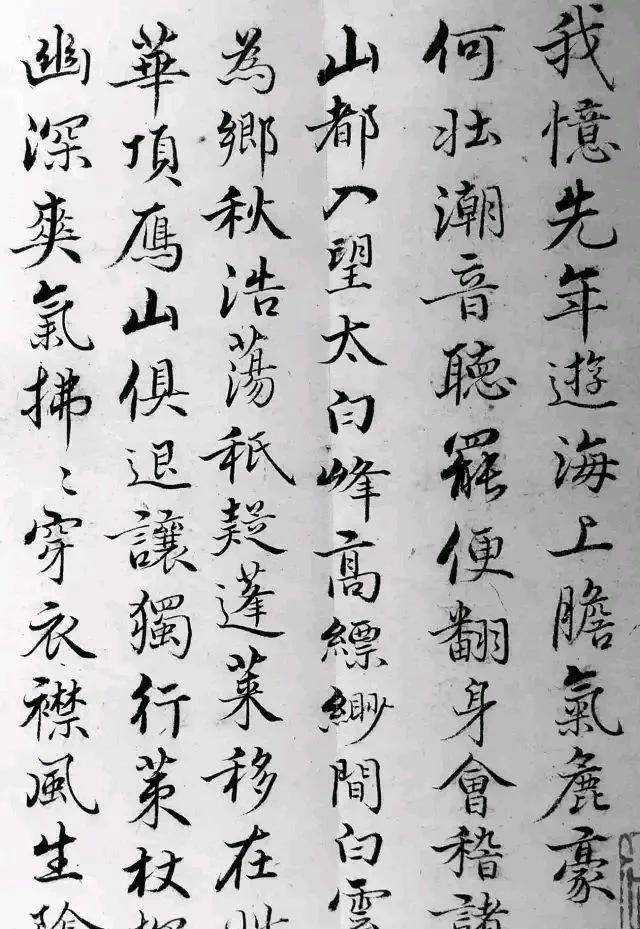 我憶先年遊海上膽氣麁豪
何壯潮音聽罷便翻身會稽諸
山都入望太白峰高縹緲間白雲
為鄉秋浩蕩秖疑蓬萊移在
華頂鴈山俱退讓獨行策杖
幽深爽氣拂〻穿衣襟風生